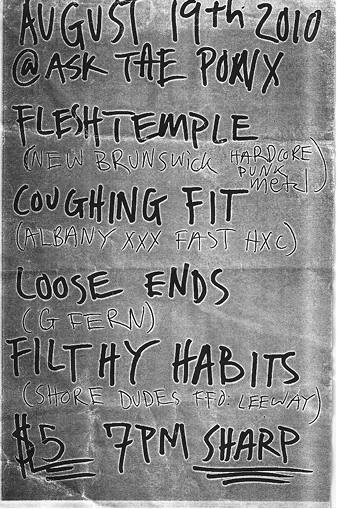 AUGUST 19th 2010
@ ASK THE PUNX
FLESHTEMPLE
(NEW BRUNSWICK HARDCORE PUNK metal)
COUGHING FIT
(ALBANY XXX FAST HXC)
LOOSE ENDS
(G FERN)
FILTHY HABITS
(SHORE DUDES FFO: LEEWAY)
$5 7PM SHARP